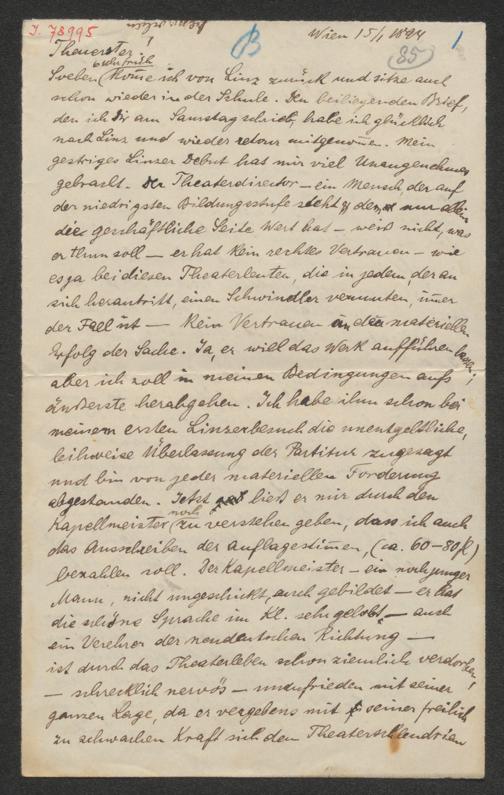 I. 78995
B
Wien 15/1 1894
85
1
Theuerster!
Soeben 6 Uhr früh kom̄e ich von Linz zurück und sitze auch
schon wieder in der Schule. Den beiliegenden Brief,
den ich Dir am Samstag schrieb, habe ich glücklich
nach Linz und wieder retour mitgenom̄en. Mein
gestriges Linzer Debut hat mir viel Unangenehmes
gebracht. Der Theaterdirector – ein Mensch, der auf
der niedrigsten Bildungsstufe steht, dem nur allein
die geschäftliche Seite Wert hat – weiß nicht, was
er thun soll – er hat kein rechtes Vertrauen – wie
es ja bei diesen Theaterleuten, die in jedem, der an
sich herantritt, einen Schwindler vermuten, im̄er
der Fall ist – kein Vertrauen in den materiellen
Erfolg der Sache. Ja, er will das Werk aufführen lassen,
aber ich soll in meinen Bedingungen aufs
äußerste herabgehen. Ich habe ihm schon bei
meinem ersten Linzerbesuch die unentgeltliche,
leihweise Überlassung der Partitur zugesagt
und bin von jeder materiellen Forderung
abgestanden. Jetzt ließ er mir durch den
Kapellmeister noch zu verstehen geben, dass ich auch
das Ausschreiben der Auflagestim̄en, (ca. 60–80 fl)
bezahlen soll. Der Kapellmeister – ein noch junger
Mann, nicht ungeschickt, auch gebildet – er hat
die schöne Sprache im Kl. sehr gelobt, – auch
ein Verehrer der neudeutschen Richtung –
ist durch das Theaterleben schon ziemlich verdorben,
– schrecklich nervös – unzufrieden mit seiner
ganzen Lage, da er vergebens mit seiner freilich
zu schwachen Kraft sich dem Theaterschlendrian